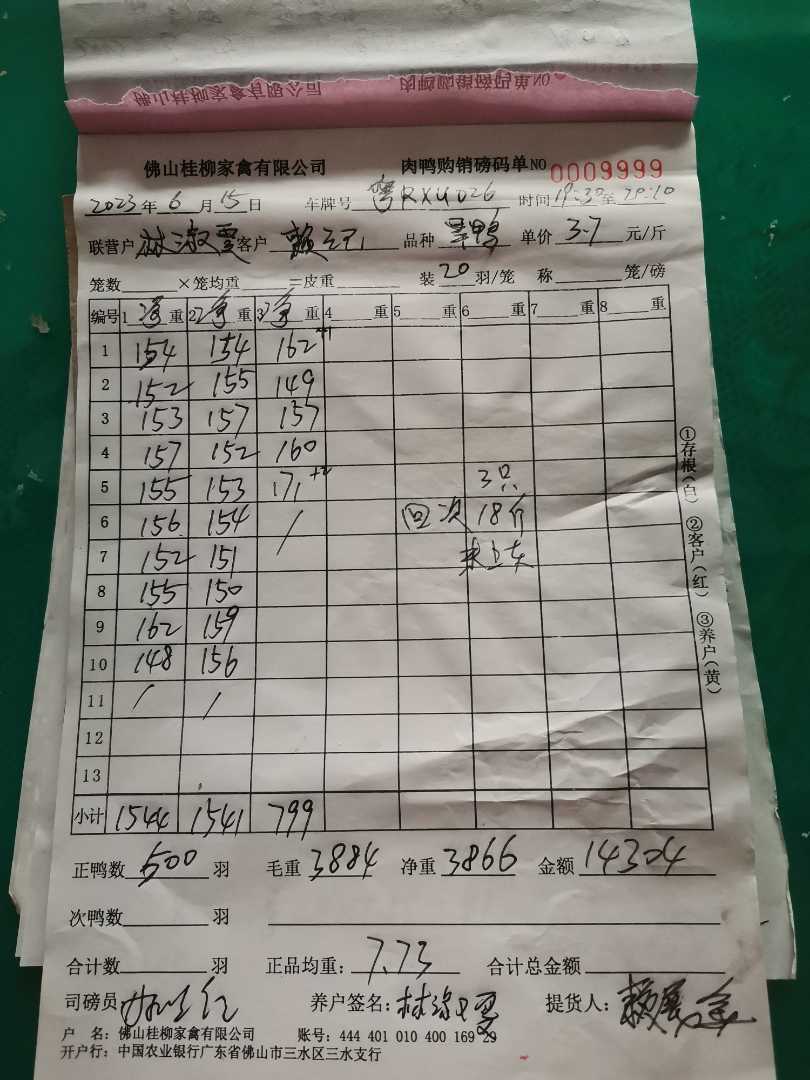 佛山桂柳家禽有限公司 肉鸭购销磅码单NO 0009999
2023年 6 月 15 日 车牌号 粤RXU026 时间 19:30 至 20:10
联营户 林淑 客户 赖 品种 鸭 单价 3.7 元/斤
笼数 ×笼均重 =皮重 装 20 羽/笼 称 笼/磅
编号 1 净 重 2 净 重 3 净 重 4 重 5 重 6 重 7 重 8 重
1 154 154 162 +1
2 152 155 149
3 153 157 157
4 157 152 160
5 155 153 171 +2 3只
6 156 154 / 回次 18斤
7 152 151 未上车
8 155 150
9 162 159
10 148 156
11 / /
12
13
小计 1544 1541 799
①存根(白) ②客户(红) ③养户(黄)
正鸭数 500 羽 毛重 3884 净重 3866 金额 14304
次鸭数 羽
合计数 羽 正品均重: 7.73 合计总金额
司磅员 养户签名: 林淑 提货人: 赖
户 名: 佛山桂柳家禽有限公司 账号: 444 401 010 400 169 29
开户行: 中国农业银行广东省佛山市三水区三水支行